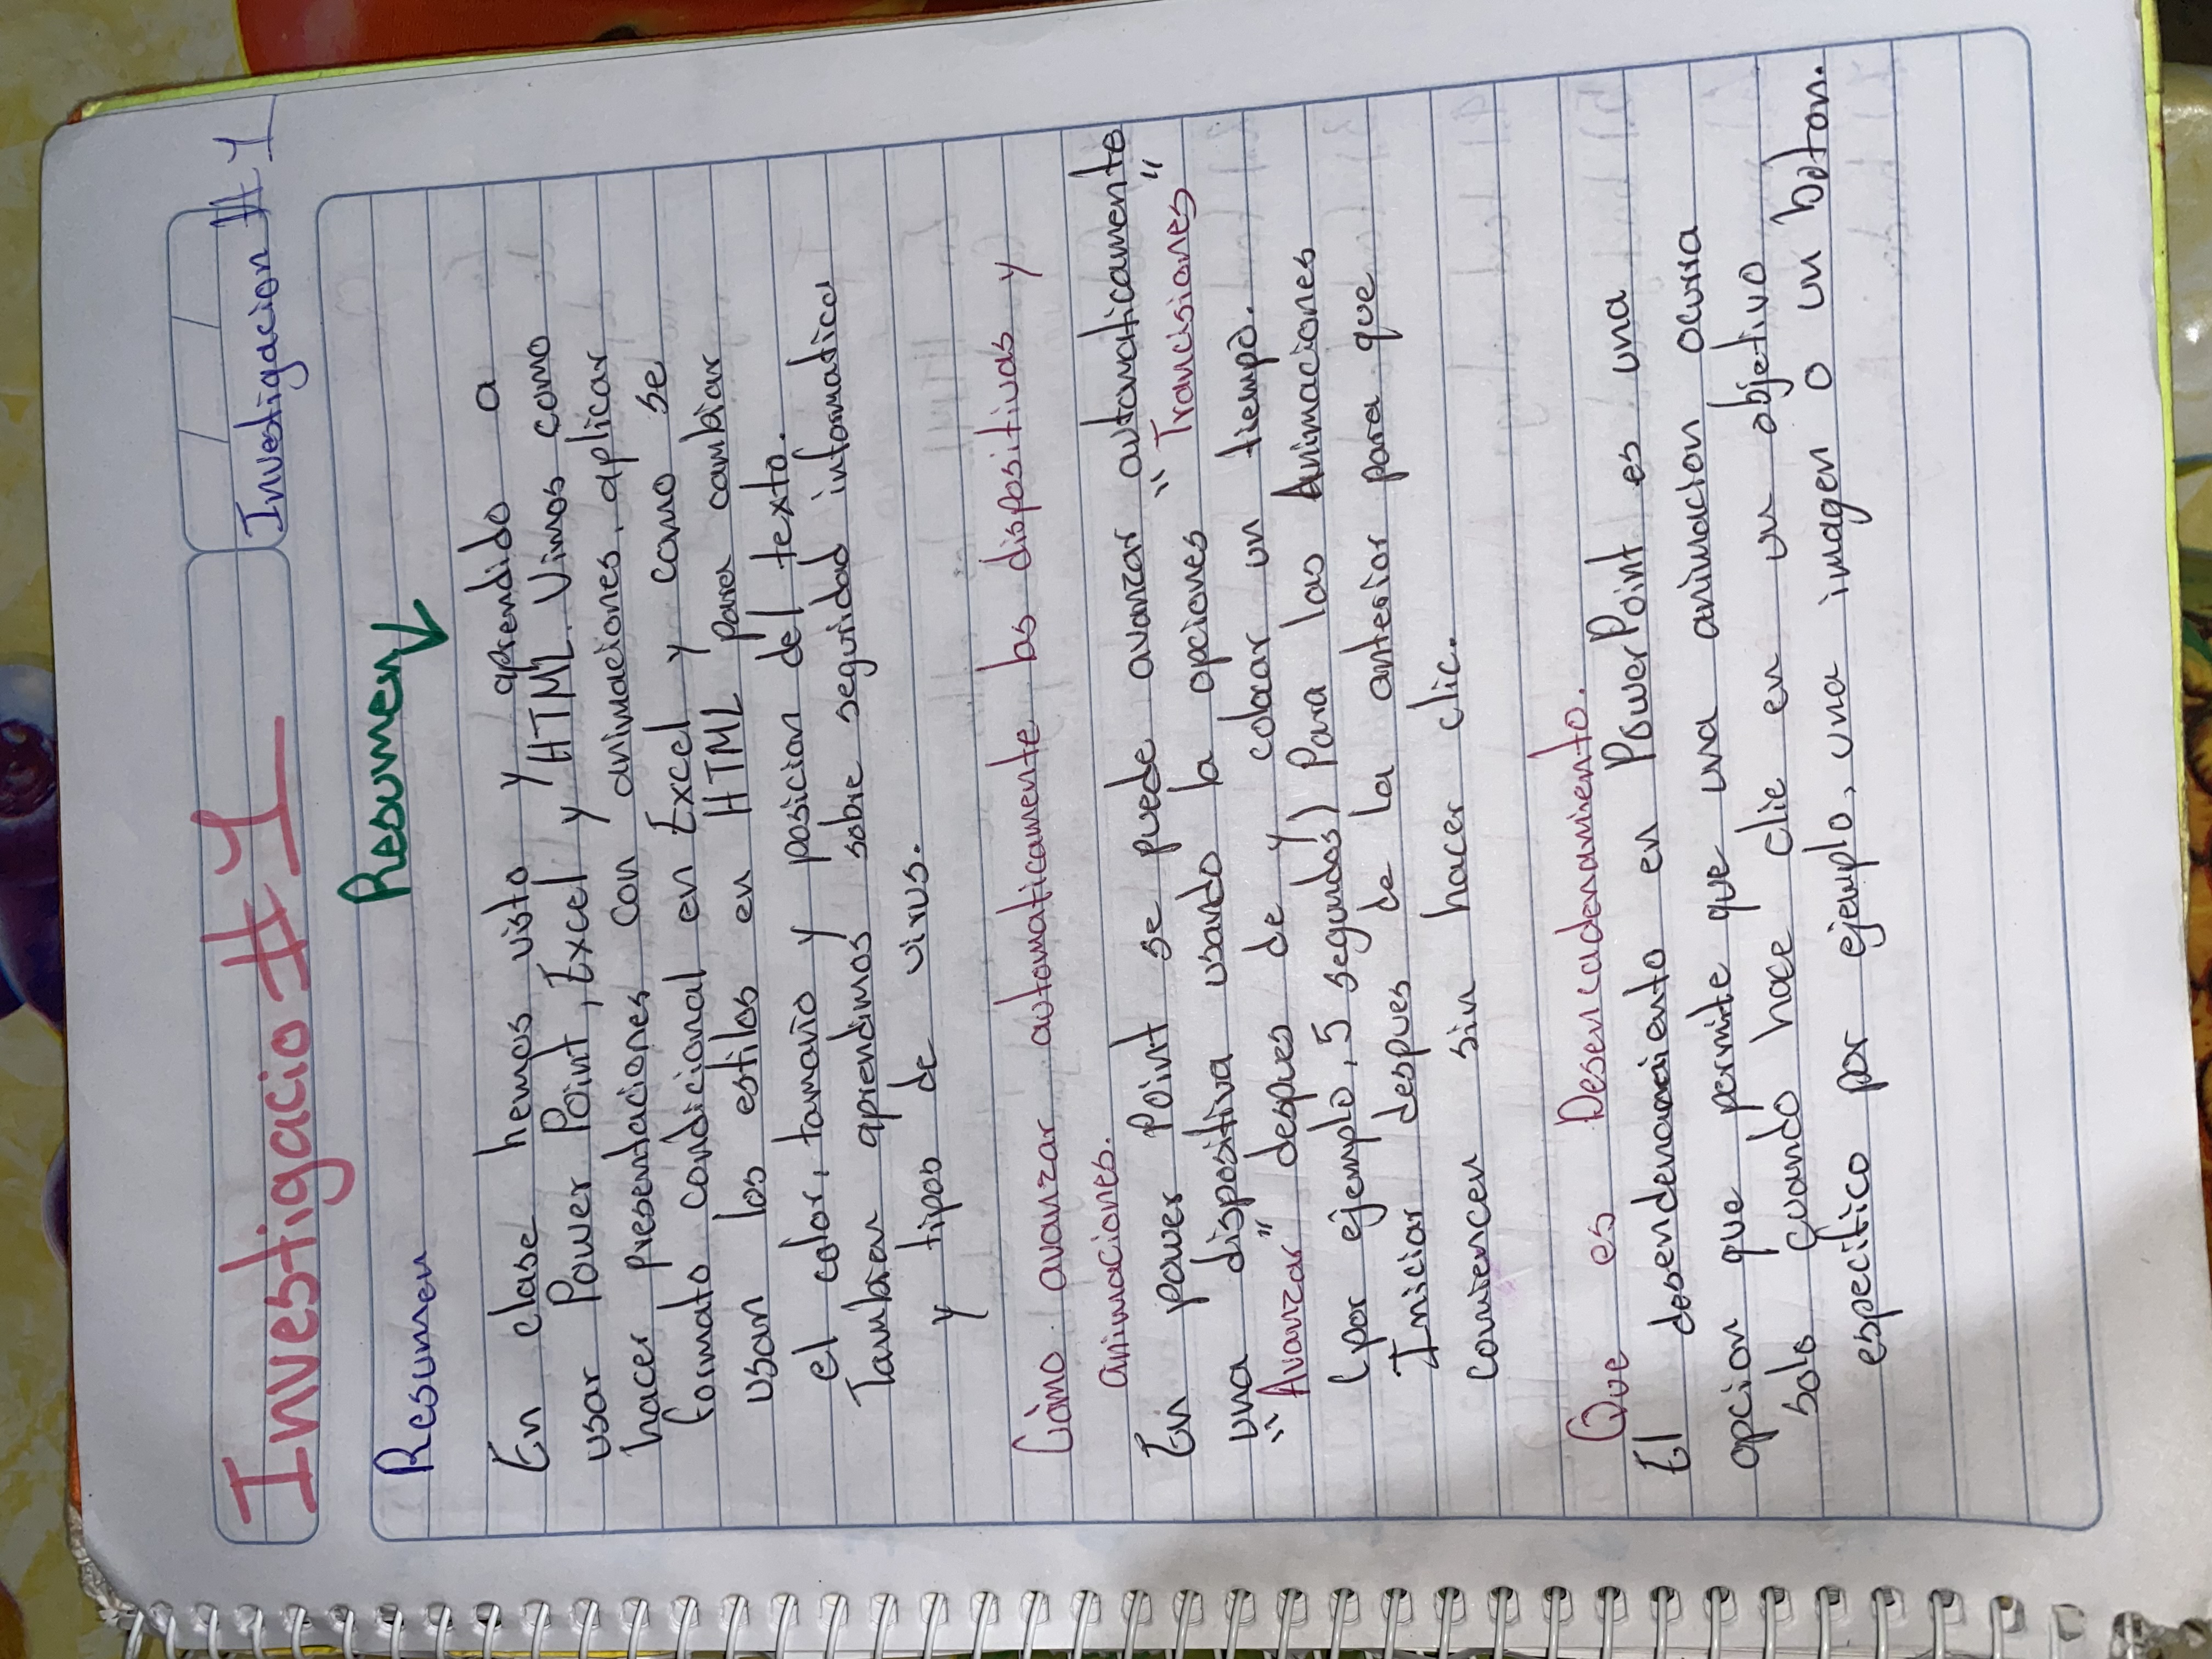 Investigacio #1
Investigacion #1
Resumen
Resumen
En clase hemos visto y aprendido a
usar Power Point, Excel y HTML. Vimos como
hacer presentaciones con animaciones, aplicar
formato condicional en Excel y como se
usan los estilos en HTML para cambiar
el color, tamaño y posicion del texto.
Tambien aprendimos sobre seguridad informatica
y tipos de virus.
Cómo avanzar automaticamente las dispositivas y
animaciones.
En power Point se puede avanzar automaticamente
una dispositiva usando la opciones "Trancisiones"
"Avanzar" despues de y colocar un tiempo.
(por ejemplo, 5 segundos) Para las Animaciones
Iniciar despues de la anterior para que
comiencen sin hacer clic.
Que es Desencadenamiento.
El desendenamiento en PowerPoint es una
opcion que permite que una animacion ocurra
solo cuando hace clic en un objetivo
especifico por ejemplo, una imagen o un boton.